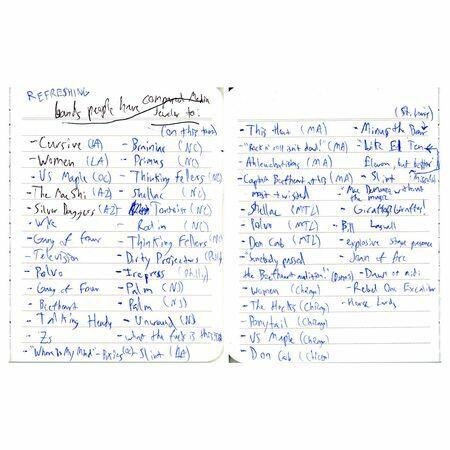 REFRESHING
bands people have compared Media
Jeweler to:
(on this tour)
- Cursive (LA)
- Women (LA)
- US Maple (OC)
- The Mae Shi (AZ)
- Silver Daggers (AZ)
- Wire
- Gang of Four
- Television
- Polvo
- Gang of Four
- Beefheart
- Talking Heads
- Zs
- "Where Is My Mind" - Pixies (OC)
- Brainiac (NC)
- Primus (NC)
- Thinking Fellers (NC)
- Shellac (NC)
- Tortoise (NC)
- Rodan (NC)
- Thinking Fellers (NC)
- Dirty Projectors
- Irepress (Philly)
- Palm (NJ)
- Palm (NJ)
- Unwound (NJ)
- what the fuck is this
- Slint (LA)
- This Heat (MA)
- "Rock n' roll isn't dead!" (MA)
- Ahleuchatistas (MA)
- Captain Beefheart at his (MA)
most twisted
- Shellac (MTL)
- Polvo (MTL)
- Don Cab (MTL)
- "Somebody passed
the Beefheart audition!"
- Women (Chicago)
- The Hocks (Chicago)
- Ponytail (Chicago)
- US Maple (Chicago)
- Don Cab (Chicago)
(St. Louis)
- Minus the Bear
- Like El Ten
Eleven, but better
- Slint
- Mac Demarco without
the image
- Giraffes? Giraffes!
- Bill Laswell
- explosive stage presence
- Joan of Arc
- Dawn of Midi
- Rebel One Excalibur
- Horse Lords